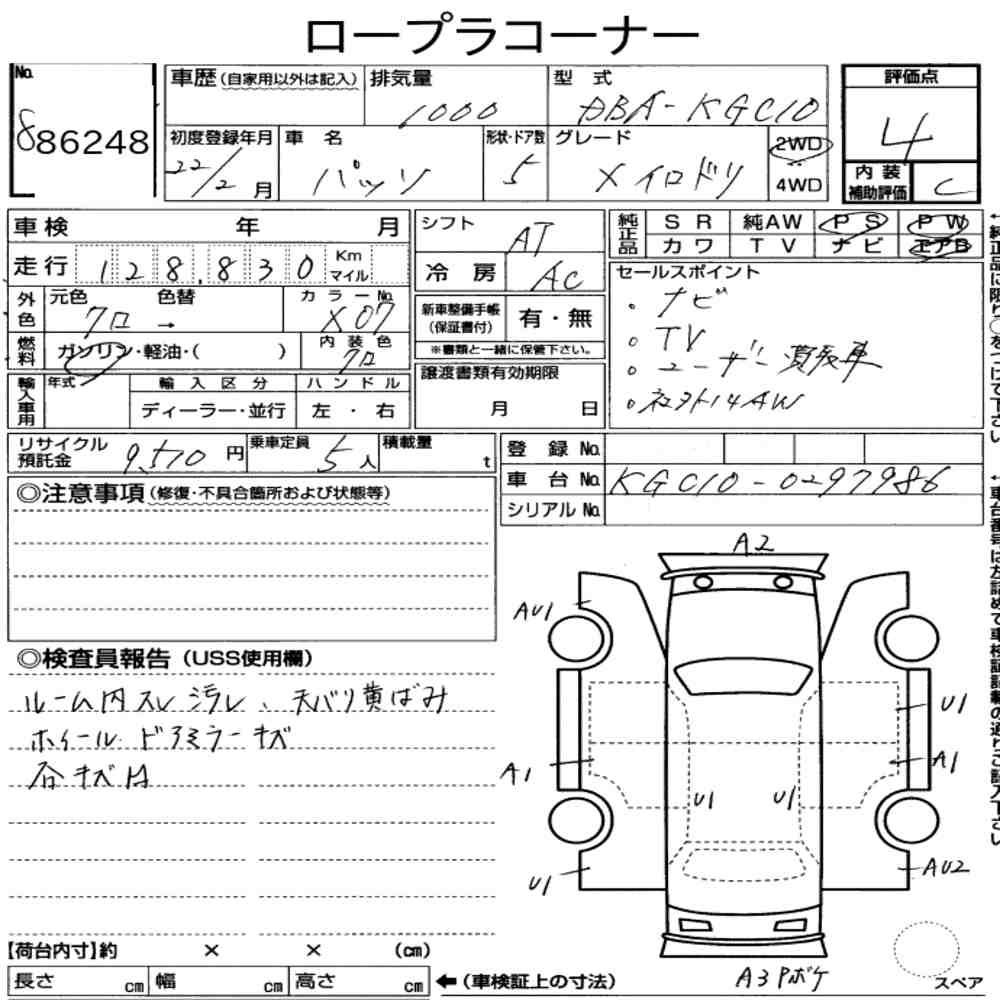 ロープラコーナー
No.
886248
車歴(自家用以外は記入) 排気量 型 式
1000 DBA-KGC10
評価点
4
初度登録年月 車 名 形状・ドア数 グレード 2WD
22/2月 パッソ 5 4WD
内装補助評価 C
車検 年 月
走行 128,830 Km マイル
シフト AT
冷 房 AC
純正品 S R 純AW P S P W
カ ワ T V ナ ビ エアB
外色 元色 色替 カラーNo.
クロ → X07
燃料 ガソリン・軽油・( ) 内装色 クロ
新車整備手帳(保証書付) 有・無
※書類と一緒に保管下さい。
輸入車用 年式 輸 入 区 分 ハ ン ド ル
ディーラー・並行 左 ・ 右
譲渡書類有効期限
月 日
セールスポイント
・ナビ
・TV
・ユーザー買取車
・社外14AW
リサイクル預託金 9,510円 乗車定員 5人 積載量 t
登 録 No.
車 台 No. KGC10-0297986
シリアル No.
◎注意事項(修復・不具合箇所および状態等)
◎検査員報告(USS使用欄)
ルーム内スレ汚レ、天バリ黄ばみ
ホイール ドアミラーキズ
A2
AU1
U1
A1
A1
U1
U1
U1
AU2
A3 Pボケ
スペア
【荷台内寸】約 × × (cm)
長さ cm 幅 cm 高さ cm ←(車検証上の寸法)
↑純正品に限り○をつけて下さい
↑車台番号は左詰めで車検証記載の通りご記入下さい